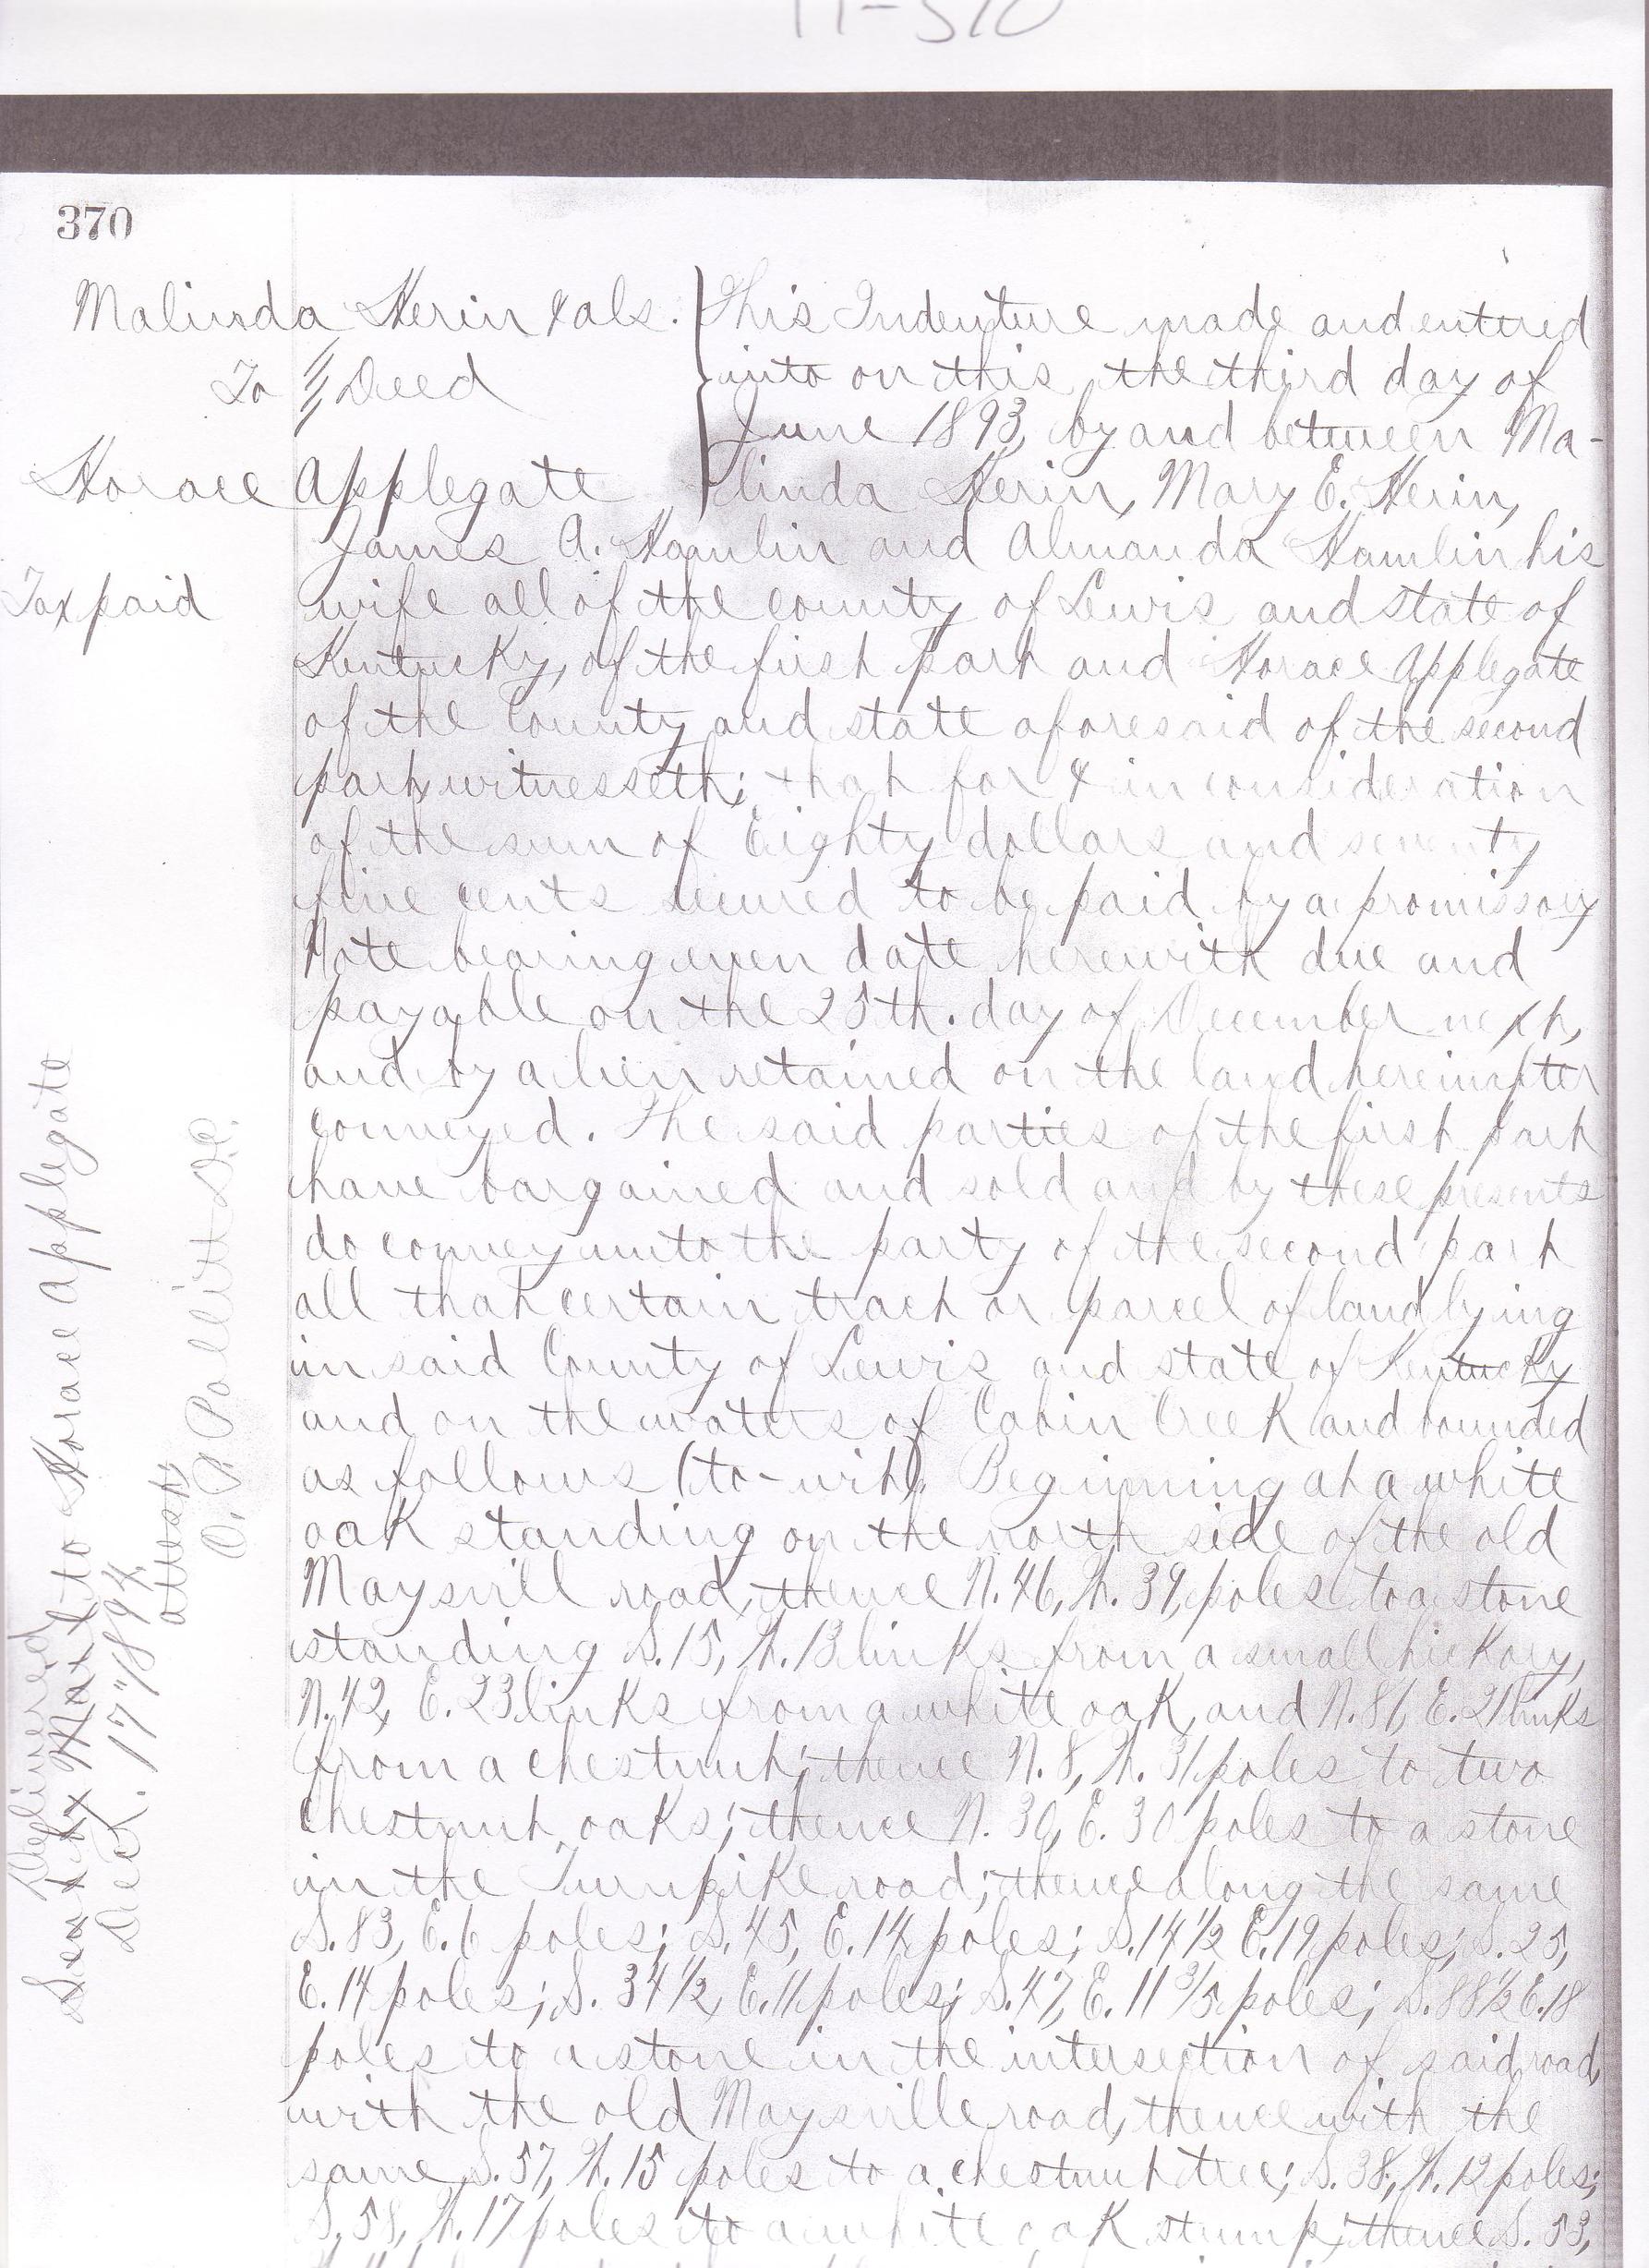 11-370
370
Malinda Herin &als.
To Deed
Horace Applegate
Tax paid
This Indenture made and entered
into on this, the third day of
June 1893, by and between Ma-
linda Herin, Mary E. Herin,
James A. Hamlin and Almanda Hamlin his
wife all of the county of Lewis and state of
Kentucky, of the first part and Horace Applegate
of the County and state aforesaid of the second
part, witnesseth; that for & in consideration
of the sum of Eighty dollars and seventy
five cents secured to be paid by a promissory
Note bearing even date herewith due and
payable on the 25th. day of December next,
and by a lien retained on the land hereinafter
conveyed. The said parties of the first part
have bargained and sold and by these presents
do convey unto the party of the second part
all that certain tract or parcel of land lying
in said County of Lewis and state of Kentucky
and on the waters of Cabin Creek and bounded
as follows (to-wit). Beginning at a white
oak standing on the north side of the old
Maysvill road, thence N. 46, W. 39, poles to a stone
standing S. 15, W. 13 links from a small hickory,
N. 42, E. 23 links from a white oak, and N. 81, E. 21 links
from a chestnut; thence N. 8, W. 31 poles to two
chestnut oaks; thence N. 30, E. 30 poles to a stone
in the Turnpike road; thence along the same
S. 83, E. 6 poles; S. 45, E. 14 poles; S. 14 1/2 E. 19 poles; S. 25,
E. 14 poles; S. 34 1/2, E. 11 poles; S. 47, E. 11 3/5 poles; S. 88 1/2 E. 18
poles to a stone in the intersection of said road,
with the old Maysville road, thence with the
same S. 57, W. 15 poles to a chestnut tree; S. 38, W. 12 poles;
S. 58, W. 17 poles to a white oak stump; thence S. 53,
Delivered
Sent by Mail to Horace Applegate
Dec. 17" 1894.
attest,
O. P. Pollitt D.C.